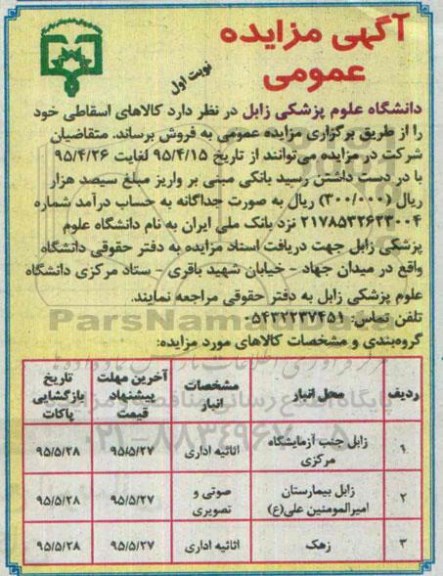 آگهی مزایده
عمومی
نوبت اول
دانشگاه علوم پزشکی زابل در نظر دارد کالاهای اسقاطی خود
را از طریق برگزاری مزایده عمومی به فروش برساند. متقاضیان
شرکت در مزایده می‌توانند از تاریخ ۹۵/۴/۱۵ لغایت ۹۵/۴/۲۶
با در دست داشتن رسید بانکی مبنی بر واریز مبلغ سیصد هزار
ریال (۳۰۰/۰۰۰) ریال به صورت جداگانه به حساب درآمد شماره
۲۱۷۸۵۳۲۶۲۳۰۰۴ نزد بانک ملی ایران به نام دانشگاه علوم
پزشکی زابل جهت دریافت اسناد مزایده به دفتر حقوقی دانشگاه
واقع در میدان جهاد - خیابان شهید باقری - ستاد مرکزی دانشگاه
علوم پزشکی زابل به دفتر حقوقی مراجعه نمایند.
تلفن تماس: ۰۵۴۳۲۲۳۷۴۵۱
گروه‌بندی و مشخصات کالاهای مورد مزایده:
ردیف محل انبار مشخصات انبار آخرین مهلت پیشنهاد قیمت تاریخ بازگشایی پاکات
۱ زابل جنب آزمایشگاه مرکزی اثاثیه اداری ۹۵/۵/۲۷ ۹۵/۵/۲۸
۲ زابل بیمارستان امیرالمومنین علی(ع) صوتی و تصویری ۹۵/۵/۲۷ ۹۵/۵/۲۸
۳ زهک اثاثیه اداری ۹۵/۵/۲۷ ۹۵/۵/۲۸
ParsNamadData
۰۲۱-۸۸۳۴۹۶۷۰-۵